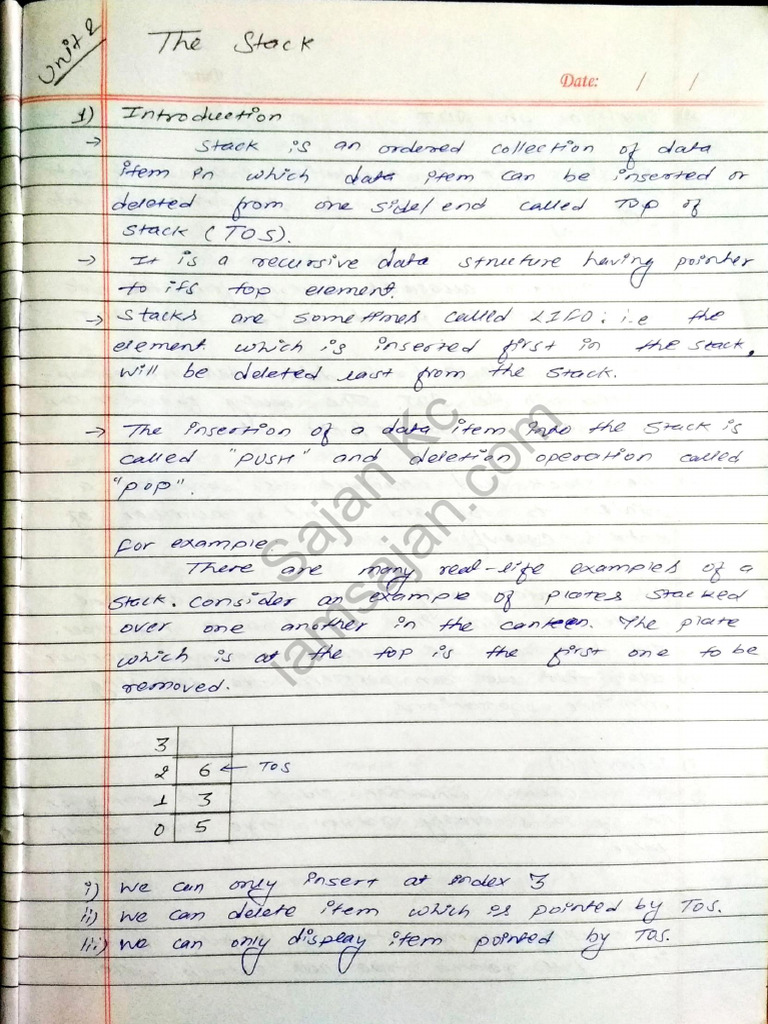 Unit 2
The Stack
Date: / /
1) Introduction
→ Stack is an ordered collection of data
item in which data item can be inserted or
deleted from one side/end called Top of
Stack (TOS).
→ It is a recursive data structure having pointer
to its top element.
→ Stacks are sometimes called LIFO: i.e the
element which is inserted first in the stack,
will be deleted last from the stack.
→ The insertion of a data item into the stack is
called "PUSH" and deletion operation called
"POP".
For example
There are many real-life examples of a
stack. Consider an example of plates stacked
over one another in the canteen. The plate
which is at the top is the first one to be
removed.
3
2 6 ← TOS
1 3
0 5
i) We can only insert at index 3
ii) We can delete item which is pointed by TOS.
iii) We can only display item pointed by TOS.
Sajan Kc
iamsajan.com